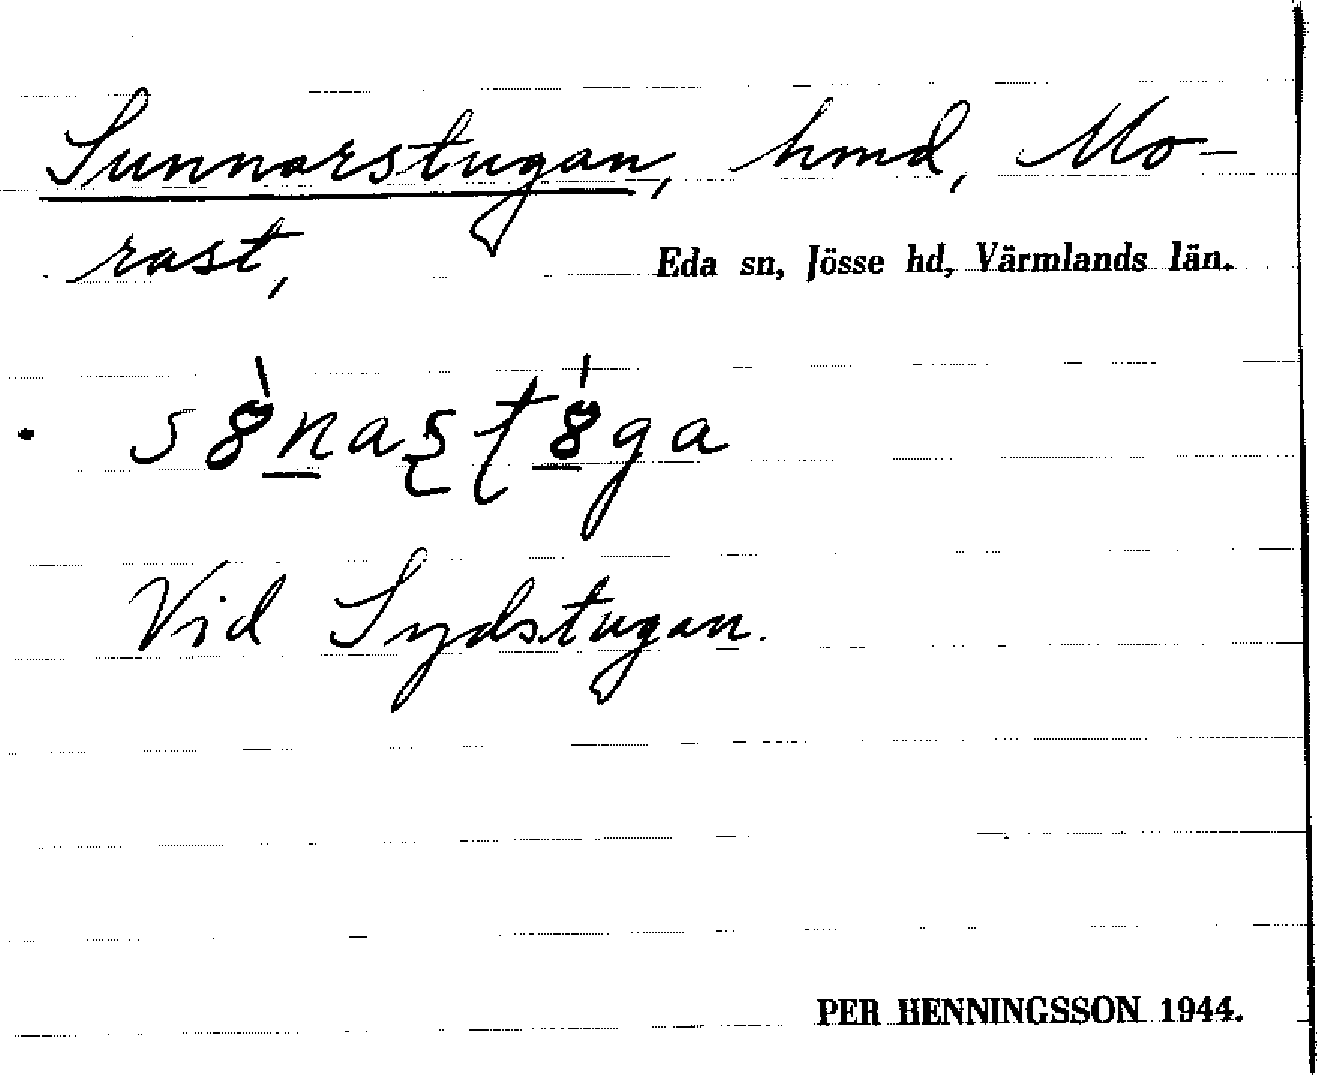 Sunnarstugan, hmd, Mo-
rast,
Eda sn, Jösse hd, Värmlands län.
Vid Sydstugan.
PER HENNINGSSON 1944.